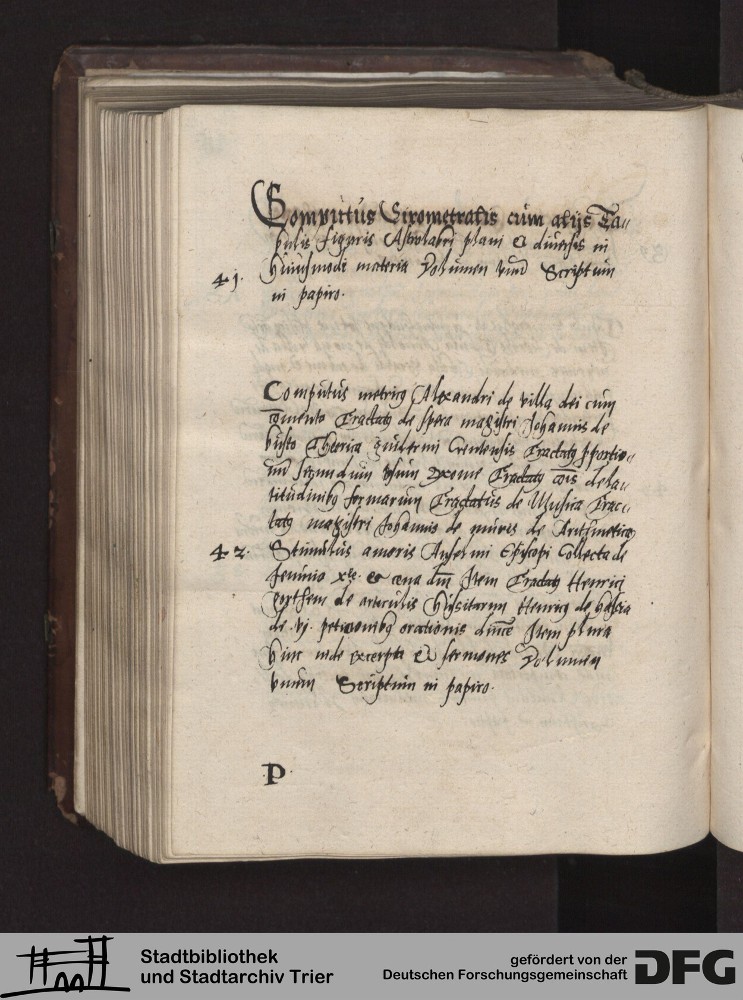 Computus Cirometralis cum alijs Ta„
bulis figuris Astrolabij plani & diuersis in
41. huiusmodi materia Volumen vnu Scriptum
in papiro.
Computus metricꝰ Alexandri de villa dei cum
cōmento Tractatꝰ de spera magistri Johannis de
busto Theorica guilermi Tractatꝰ ꝓportio„
nū secundum vsum Tractatꝰ de la„
titudinibꝫ formarum Tractatus de Musica Trac„
tatꝰ magistri Johannis de muris de Arithmetica
42. Stimulus amoris Anselmi Episcopi Collecta de
Jeiunio & cena dnī Item Tractatꝰ Henrici
de articulis Hussitarum Henricꝰ de hassia
de .vj. peticionibꝫ orationis dnice Item plura
hinc inde excerpta & sermones Volumen
vnum Scriptum in papiro.
P
Stadtbibliothek
und Stadtarchiv Trier
gefördert von der
Deutschen Forschungsgemeinschaft
DFG